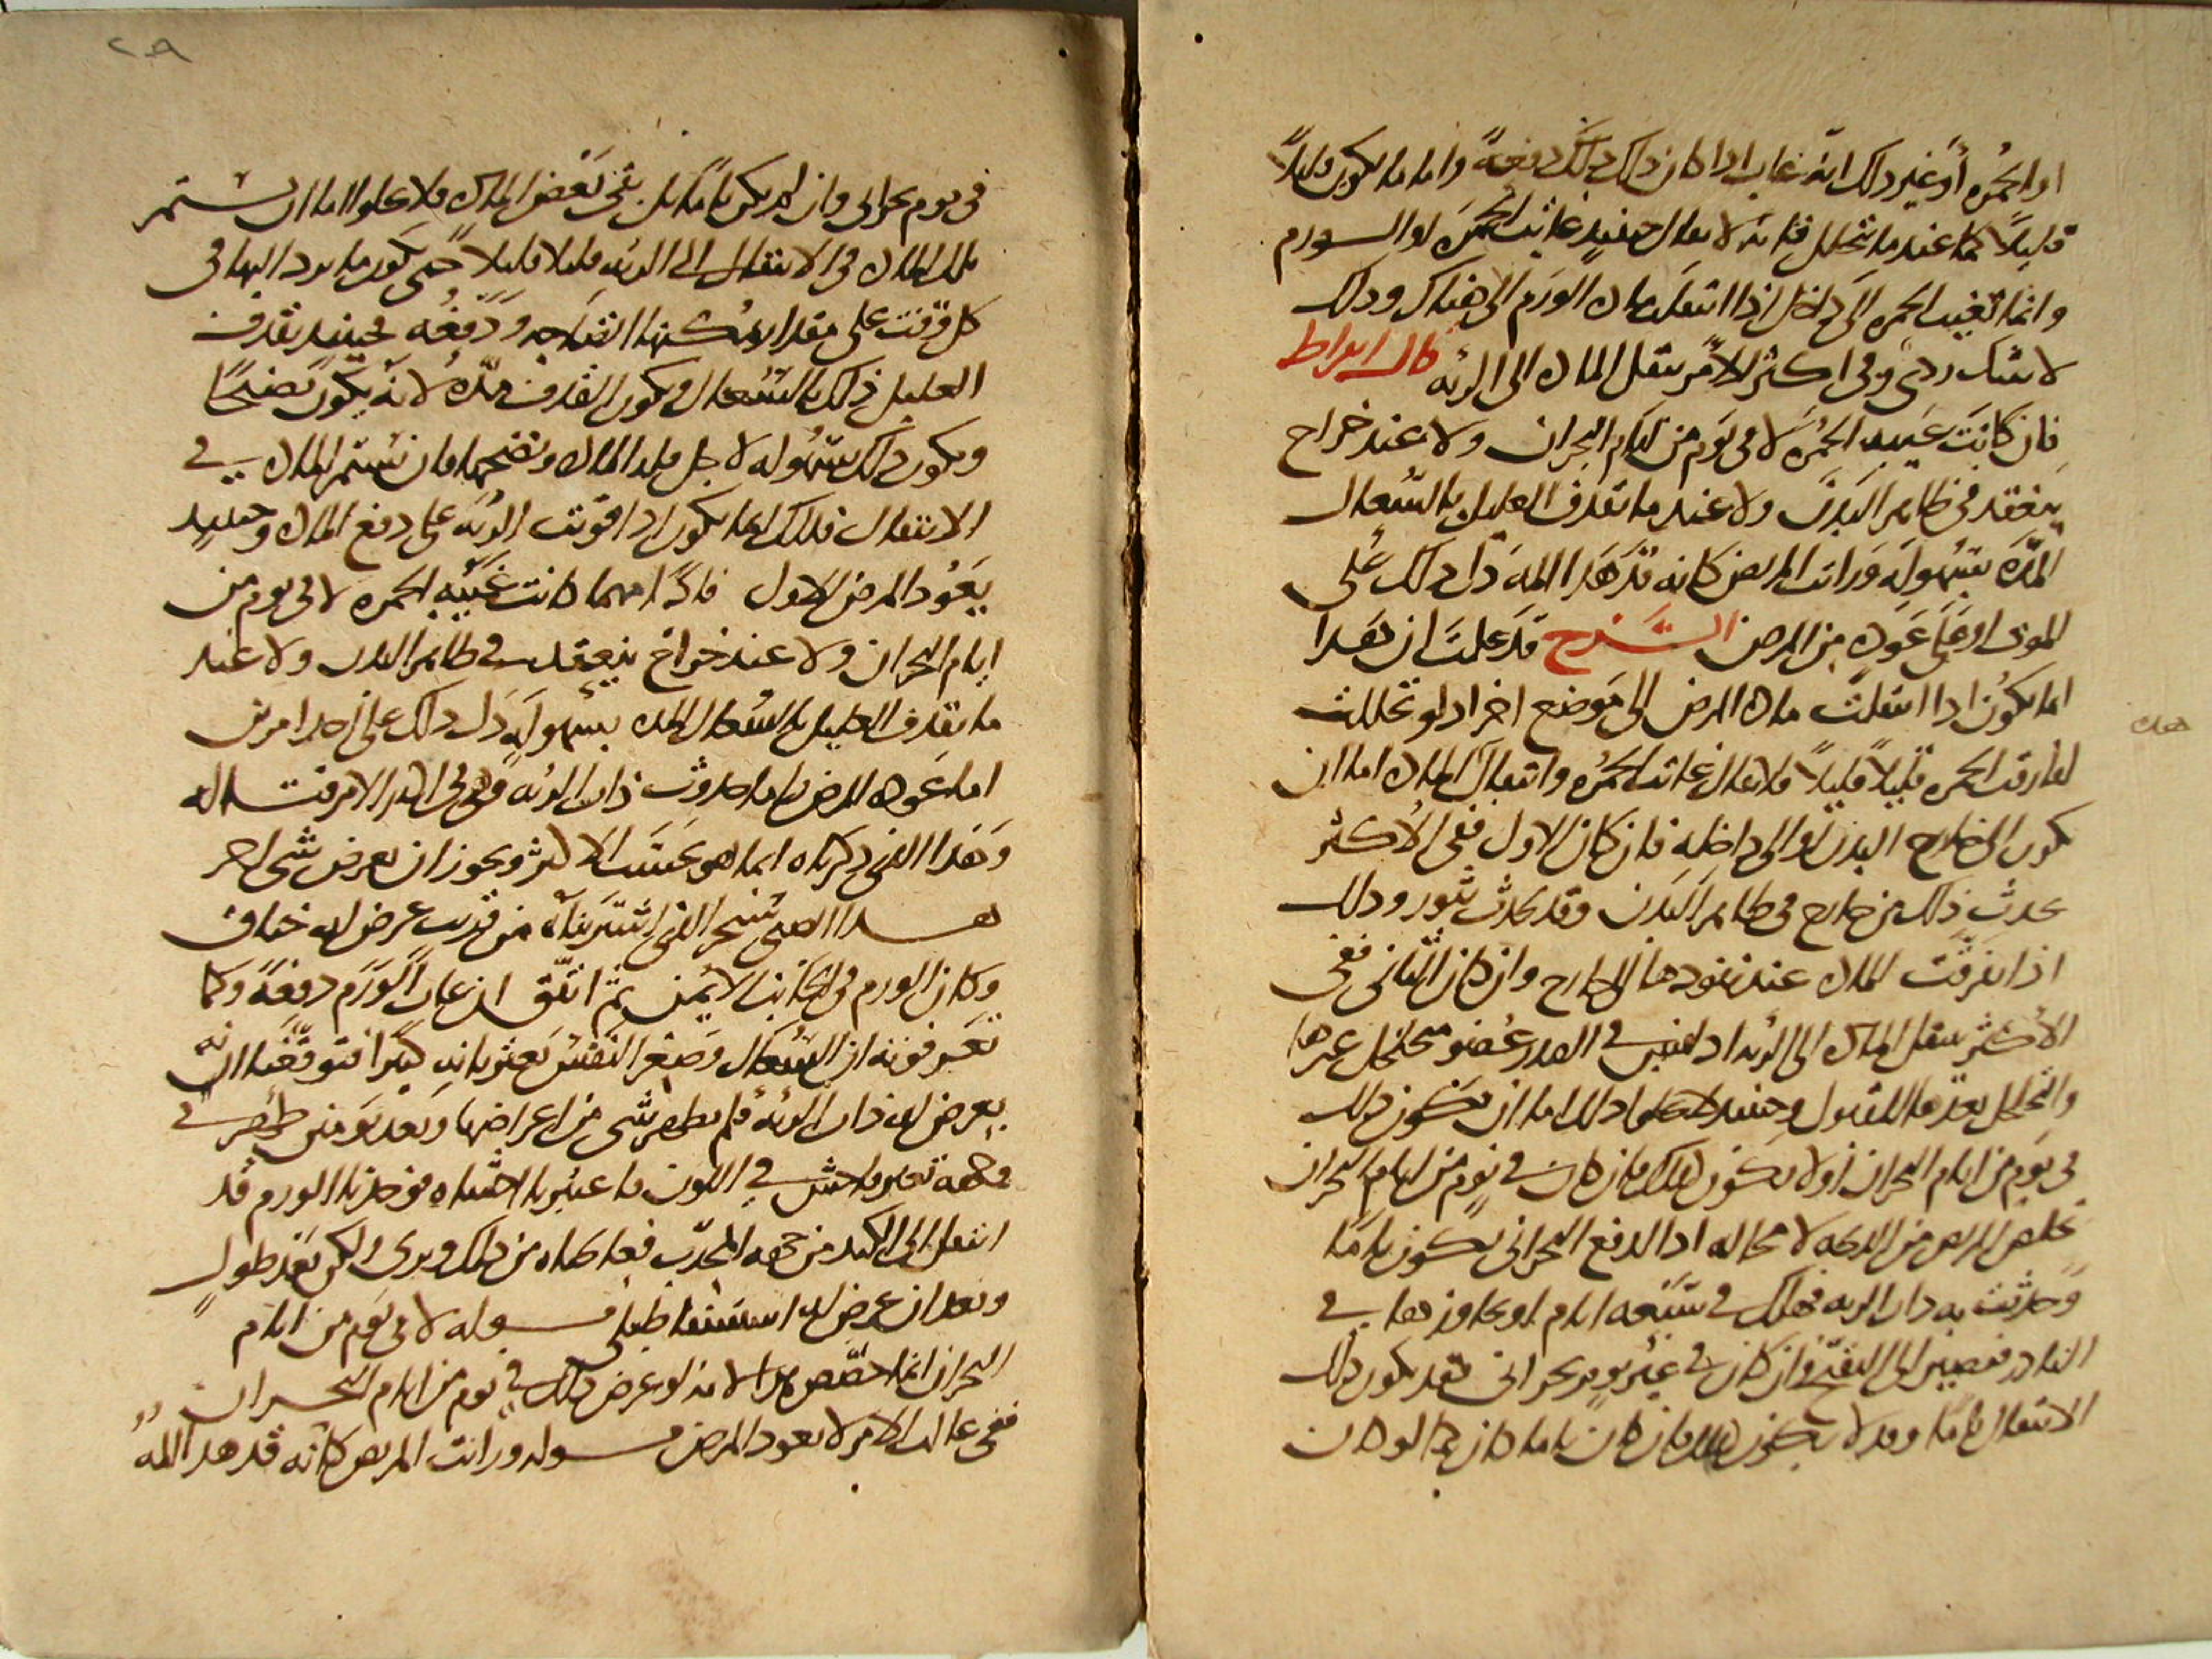 او الحمرة أو غير ذلك انه غاب اذا كان ذلك دفعةً واما ما يكون قليلاً
قليلاً كما عند ما يتحلل فانه لا يقال حينئذ غابت الحمرة او الورم
وانما تغيب الحمرة الى داخل اذا انتقلت مادة الورم الى هناك وذلك
لا شك ردئ وفى اكثر الامر ينتقل المادة الى الرئه قال ابقراط
فان كانت غيبه الحمرة لا فى يوم من ايام البحران ولا عند خراج
ينعقد فى ظاهر البدن ولا عند ما يقذف العليل بالسعال
المدّة بسهوله ورايت المريض كانه قد هدا المه دل ذلك على
الموت او على عوده من المرض الشرح قد علمت ان هذا
انما يكون اذا انتقلت مادة المرض الى موضع اخر اذ لو تحللت
لفارقت الحمرة قليلاً قليلاً فلا يقال غابت الحمرة وانتقال المادة اما ان
يكون الى خارج البدن او الى داخله فان كان الاول ففى الاكثر
يحدث ذلك من خارج فى ظاهر البدن وقد يحدث بثور وذلك
اذا تفرقت المادة عند نفوذها الى خارج وان كان الثانى ففى
الاكثر ينتقل المادة الى الرئه اذ ليس فى الصدر عضو متخلخل غيرها
والتخلخل يعدها للقبول وحينئذ لا يخلوا ذلك اما ان يكون ذلك
فى يوم من ايام البحران أو لا يكون كذلك فان كان فى يوم من ايام البحران
تخلص المريض من الذبحه لا محاله اذ الدفع البحرانى يكون تاما
وحدثت به ذات الريه فهلك فى سبعه ايام او يجاوزها فى
النادر فتصير الى التقيح وان كان فى غير يوم بحرانى فقد يكون ذلك
الانتقال تاما وقد لا يكون كذلك فان كان تاما كان كما لو كان
هذه
٢٩
فى يوم بحرانى وان لم يكن تاما بل بقى بعض المادة فلا يخلوا اما ان يستمر
تلك المادة فى الانتقال الى الرئه قليلا قليلاً حتى يكون ما يرد اليها فى
كل وقت على مقدار يمكنها انضاجه ودفعُه فحينئذ يقذف
العليل ذلك بالسعال ويكون القذف مدّة لانه يكون نضيجًا
ويكون ذلك بسهوله لاجل قله المادة ونضجها فان يستمر المادة فى
الانتقال فذلك انما يكون اذا قويت الرئه على دفع المادة وحينئذ
يعود المرض الاول فاذًا مهما كانت غيبه الحمرة لا فى يوم من
ايام البحران ولا عند خراج ينعقد فى ظاهر البدن ولا عند
ما يقذف العليل بالسعال المدة بسهوله دل ذلك على احد امرين
اما عودة المرض واما حدوث ذات الرئه وهى فى اكثر الامر قتاله
وهذا الذى ذكرناه انما هو بحسب الاكثر ويجوز ان يعرض شئ اخر
هذا الصبى سنجر الذى اشتريناه من قريب عرض له خناق
وكان الورم فى الجانب الايمن ثم اتفق ان غاب الورم دفعةً وكنا
نعرفه انه ان السعال وصغر النفس يعتريانه كثيرًا فتوقعنا انه
يعرض له ذات الرئه فلم يظهر شئ من اعراضها وبعد يومين ظهر فى
وجهه تغير فاحش فى اللون فاعتبرنا الاحشاء فوجدنا الورم قد
انتقل الى الكبد من جهه المحدّب فعالجناه من ذلك وبرئ ولكن بعد طول
وبعد ان عرض له استسقا طبلى قوله لا فى يوم من ايام
البحران انما خصص بهذا لانه لو عرض ذلك فى يوم من ايام البحران
ففى غالب الامر لا يعود المرض قوله ورايت المريض كانه قد هدا المه